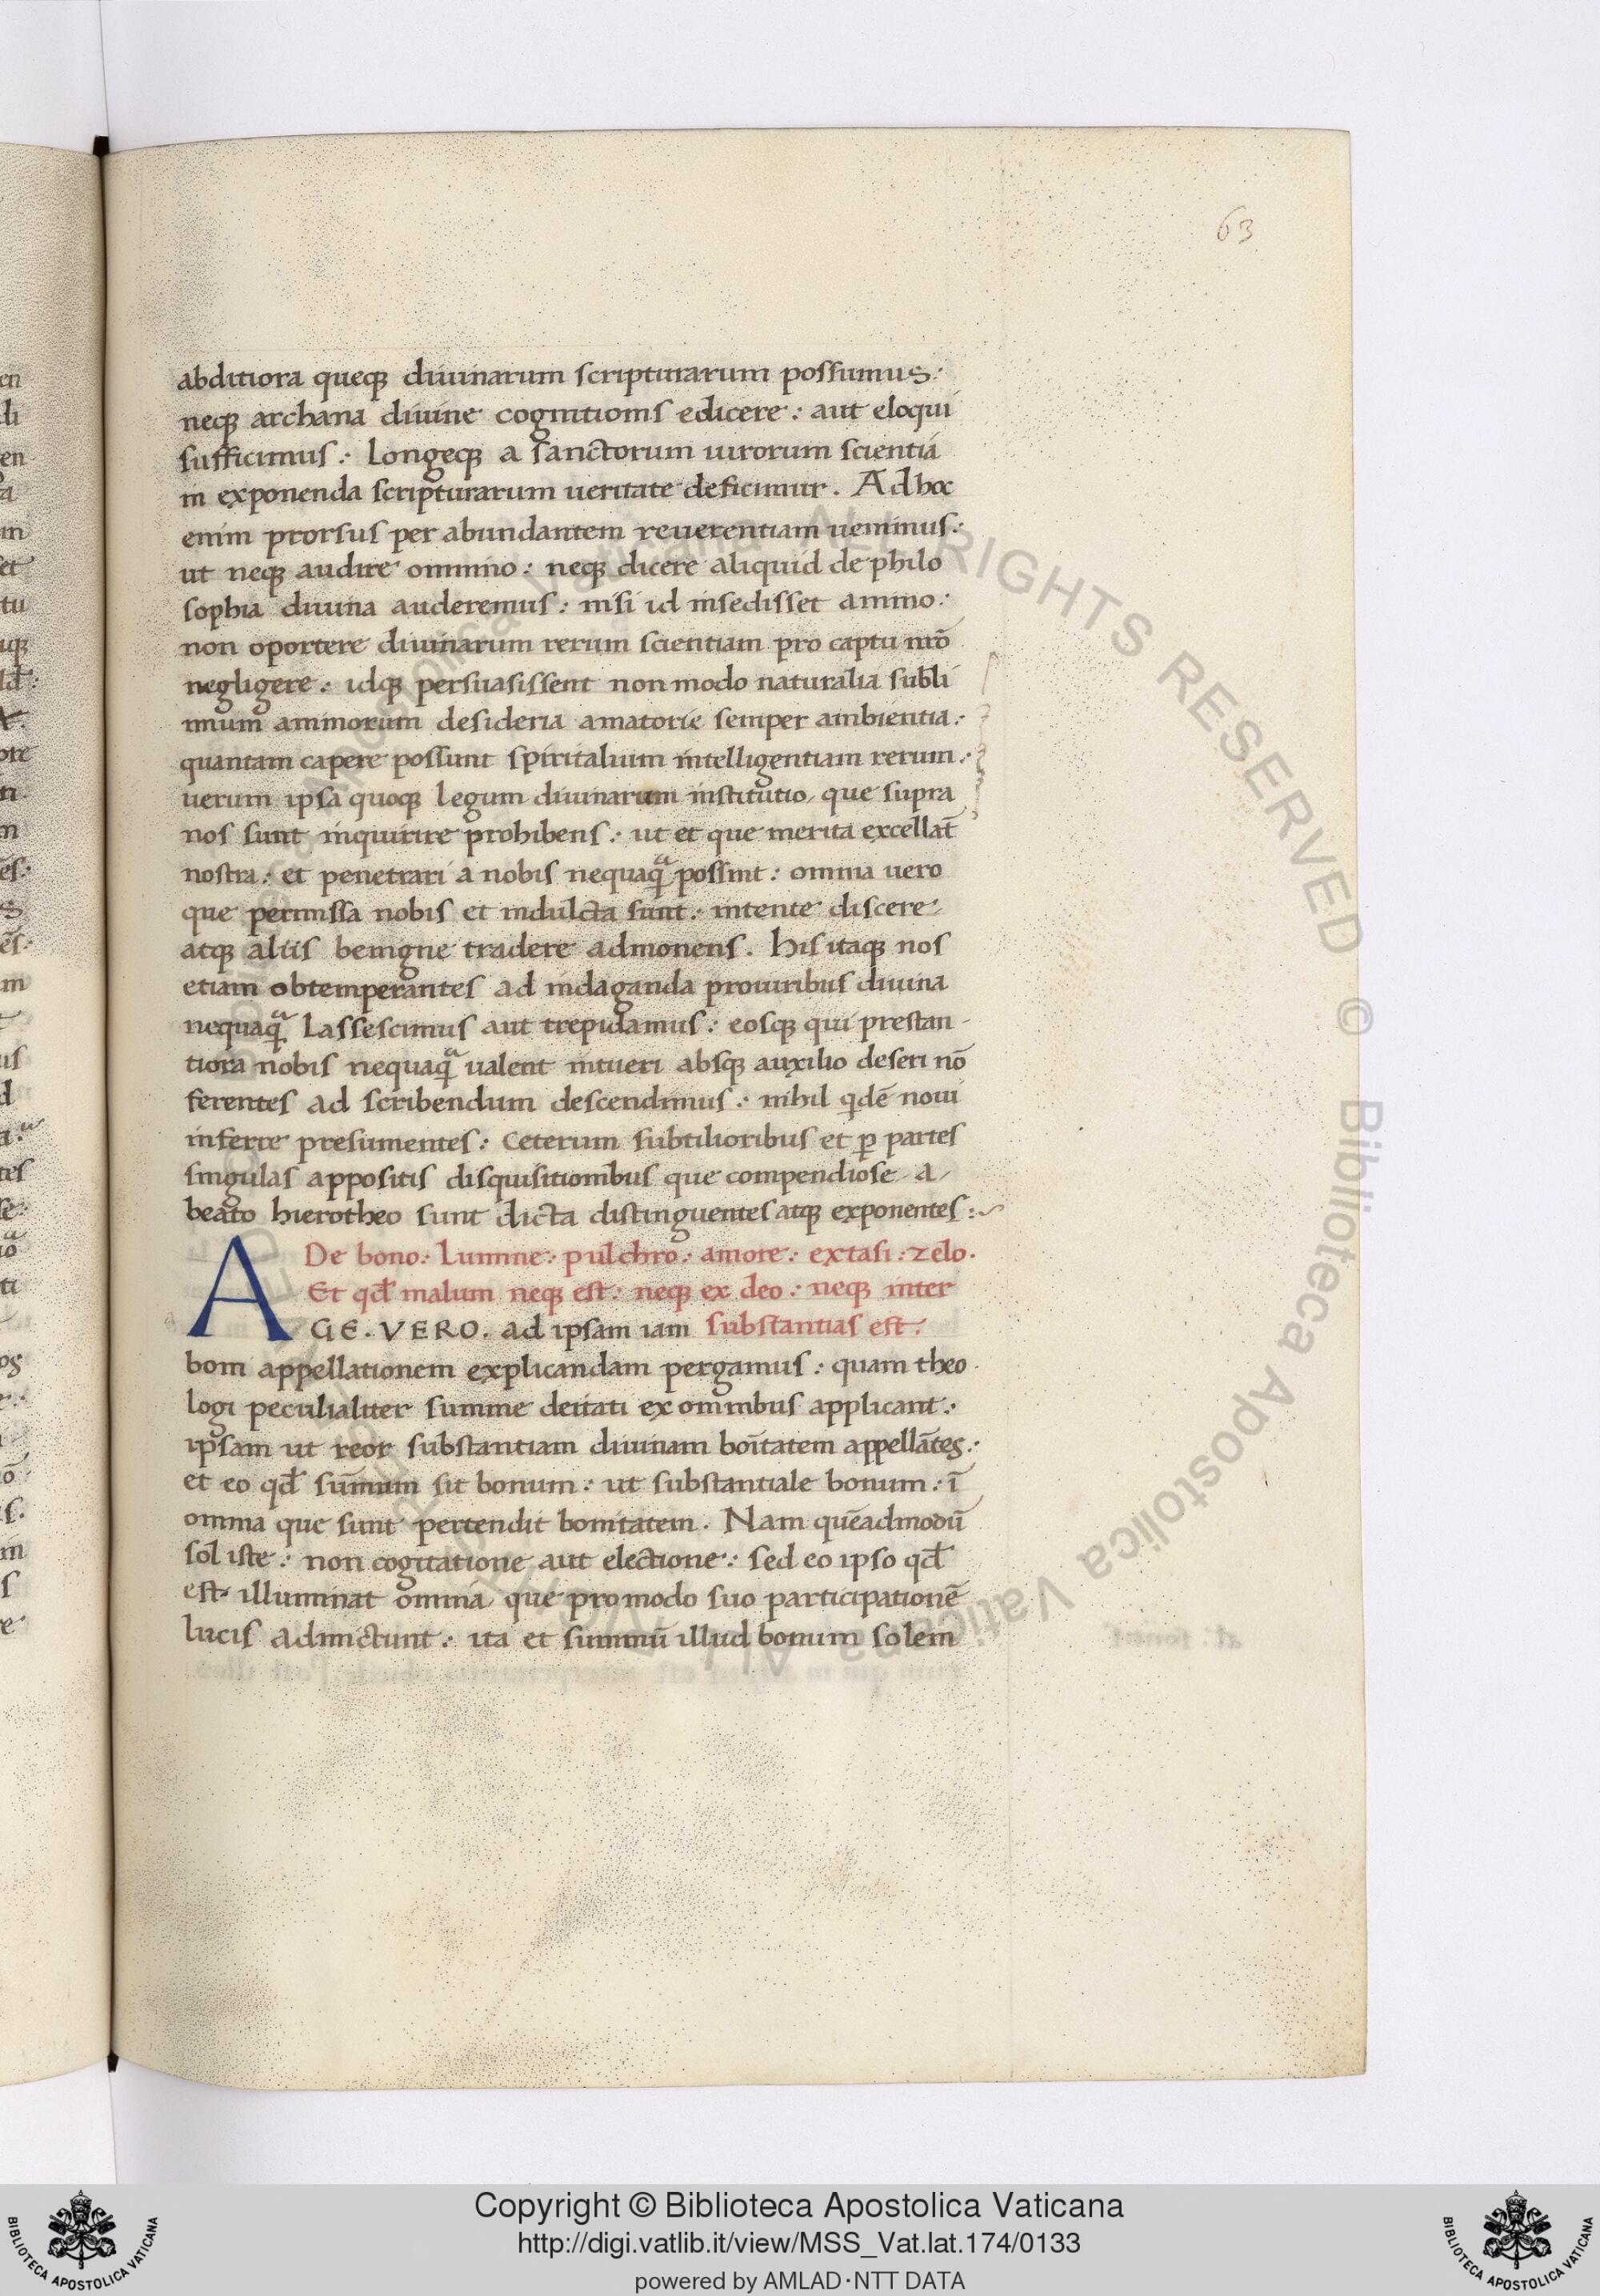 63
abditiora queqꝫ diuinarum scripturarum possumus:
neqꝫ archana diuine cognitionis edicere: aut eloqui
sufficimus: Longeqꝫ a sanctorum uirorum scientia
in exponenda scripturarum ueritate deficimur. Ad hoc
enim prorsus per abundantem reuerentiam uenimus:
ut neqꝫ audire omnino: neqꝫ dicere aliquid de philo
sophia diuina auderemus: nisi id insedisset animo:
non oportere diuinarum rerum scientiam pro captu nrō
negligere: idqꝫ persuasissent non modo naturalia subli
mium animorum desideria amatorie semper ambientia:
quantam capere possunt spiritalium intelligentiam rerum:
uerum ipsa quoqꝫ legum diuinarum institutio, que supra
nos sunt inquirire prohibens: ut et que merita excellāt
nostra: et penetrari a nobis nequaqͣ possint: omnia uero
que permissa nobis et indulcta sunt: intente discere
atqꝫ aliis benigne tradere admonens. His itaqꝫ nos
etiam obtemperantes ad indaganda pro uiribus diuina
nequaqͣ lassescimus aut trepidamus: eosqꝫ qui prestan-
tiora nobis nequaqͣ ualent intueri absqꝫ auxilio deseri nō
ferentes ad scribendum descendimus: nihil qdē noui
inferre presumentes: ceterum subtilioribus et ꝑ partes
singulas appositis disquisitionibus que compendiose a
beato hierotheo sunt dicta distinguentes atqꝫ exponentes:
De bono: Lumine: pulchro: amore: extasi: zelo.
Et qđ malum neqꝫ est: neqꝫ ex deo: neqꝫ inter
AGE. VERO. ad ipsam iam substantias est:
boni appellationem explicandam pergamus: quam theo
logi peculialiter summe deitati ex omnibus applicant:
ipsam ut reor substantiam diuinam boītatem appellātes:
et eo qđ sūmum sit bonum: ut substantiale bonum: ī
omnia que sunt pertendit bonitatem. Nam quēadmodū
sol iste: non cogitatione aut electione: sed eo ipso qđ
est illuminat omnia que pro modo suo participationē
lucis admictunt: ita et summū illud bonum solem
Biblioteca Apostolica Vaticana ALL RIGHTS RESERVED © Biblioteca Apostolica Vaticana ALL
Copyright © Biblioteca Apostolica Vaticana
http://digi.vatlib.it/view/MSS_Vat.lat.174/0133
powered by AMLAD·NTT DATA
BIBLIOTECA APOSTOLICA VATICANA
BIBLIOTECA APOSTOLICA VATICANA